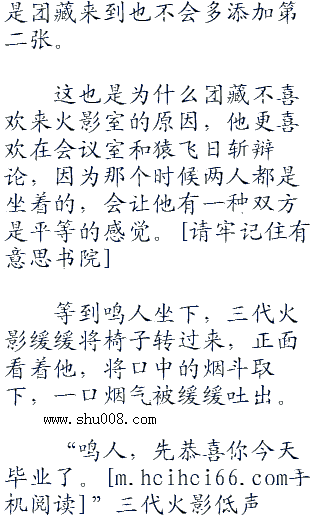 是团藏来到也不会多添加第
二张。
这也是为什么团藏不喜
欢来火影室的原因，他更喜
欢在会议室和猿飞日斩辩
论，因为那个时候两人都是
坐着的，会让他有一种双方
是平等的感觉。[请牢记住有
意思书院]
等到鸣人坐下，三代火
影缓缓将椅子转过来，正面
看着他，将口中的烟斗取
下，一口烟气被缓缓吐出。
www.shu008.com
“鸣人，先恭喜你今天
毕业了。[m.hcihci66.com手
机阅读]”三代火影低声